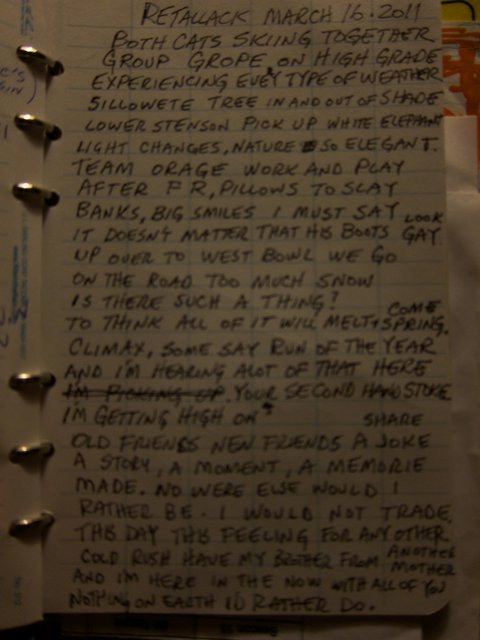 RETALLACK MARCH 16.2011
BOTH CATS SKIING TOGETHER
GROUP GROPE, ON HIGH GRADE
EXPERIENCING EVEY TYPE OF WEATHER
SILLOWETE TREE IN AND OUT OF SHADE
LOWER STENSON PICK UP WHITE ELEPHANT
LIGHT CHANGES, NATURE SO ELEGANT.
TEAM ORAGE WORK AND PLAY
AFTER P R, PILLOWS TO SLAY
BANKS, BIG SMILES I MUST SAY
IT DOESN'T MATTER THAT HIS BOOTS LOOK GAY.
UP OVER TO WEST BOWL WE GO
ON THE ROAD TOO MUCH SNOW
IS THERE SUCH A THING?
TO THINK ALL OF IT WILL MELT + COME SPRING.
CLIMAX, SOME SAY RUN OF THE YEAR
AND I'M HEARING ALOT OF THAT HERE
I'M PICKING UP. YOUR SECOND HAND STOKE
I'M GETTING HIGH ON SHARE
OLD FRIENDS NEW FRIENDS A JOKE
A STORY, A MOMENT, A MEMORIE
MADE. NO WERE ELSE WOULD I
RATHER BE. I WOULD NOT TRADE
THIS DAY THIS FEELING FOR ANY OTHER
COLD RUSH HAVE MY BROTHER FROM ANOTHER MOTHER
AND I'M HERE IN THE NOW WITH ALL OF YOU
NOTHING ON EARTH I'D RATHER DO.